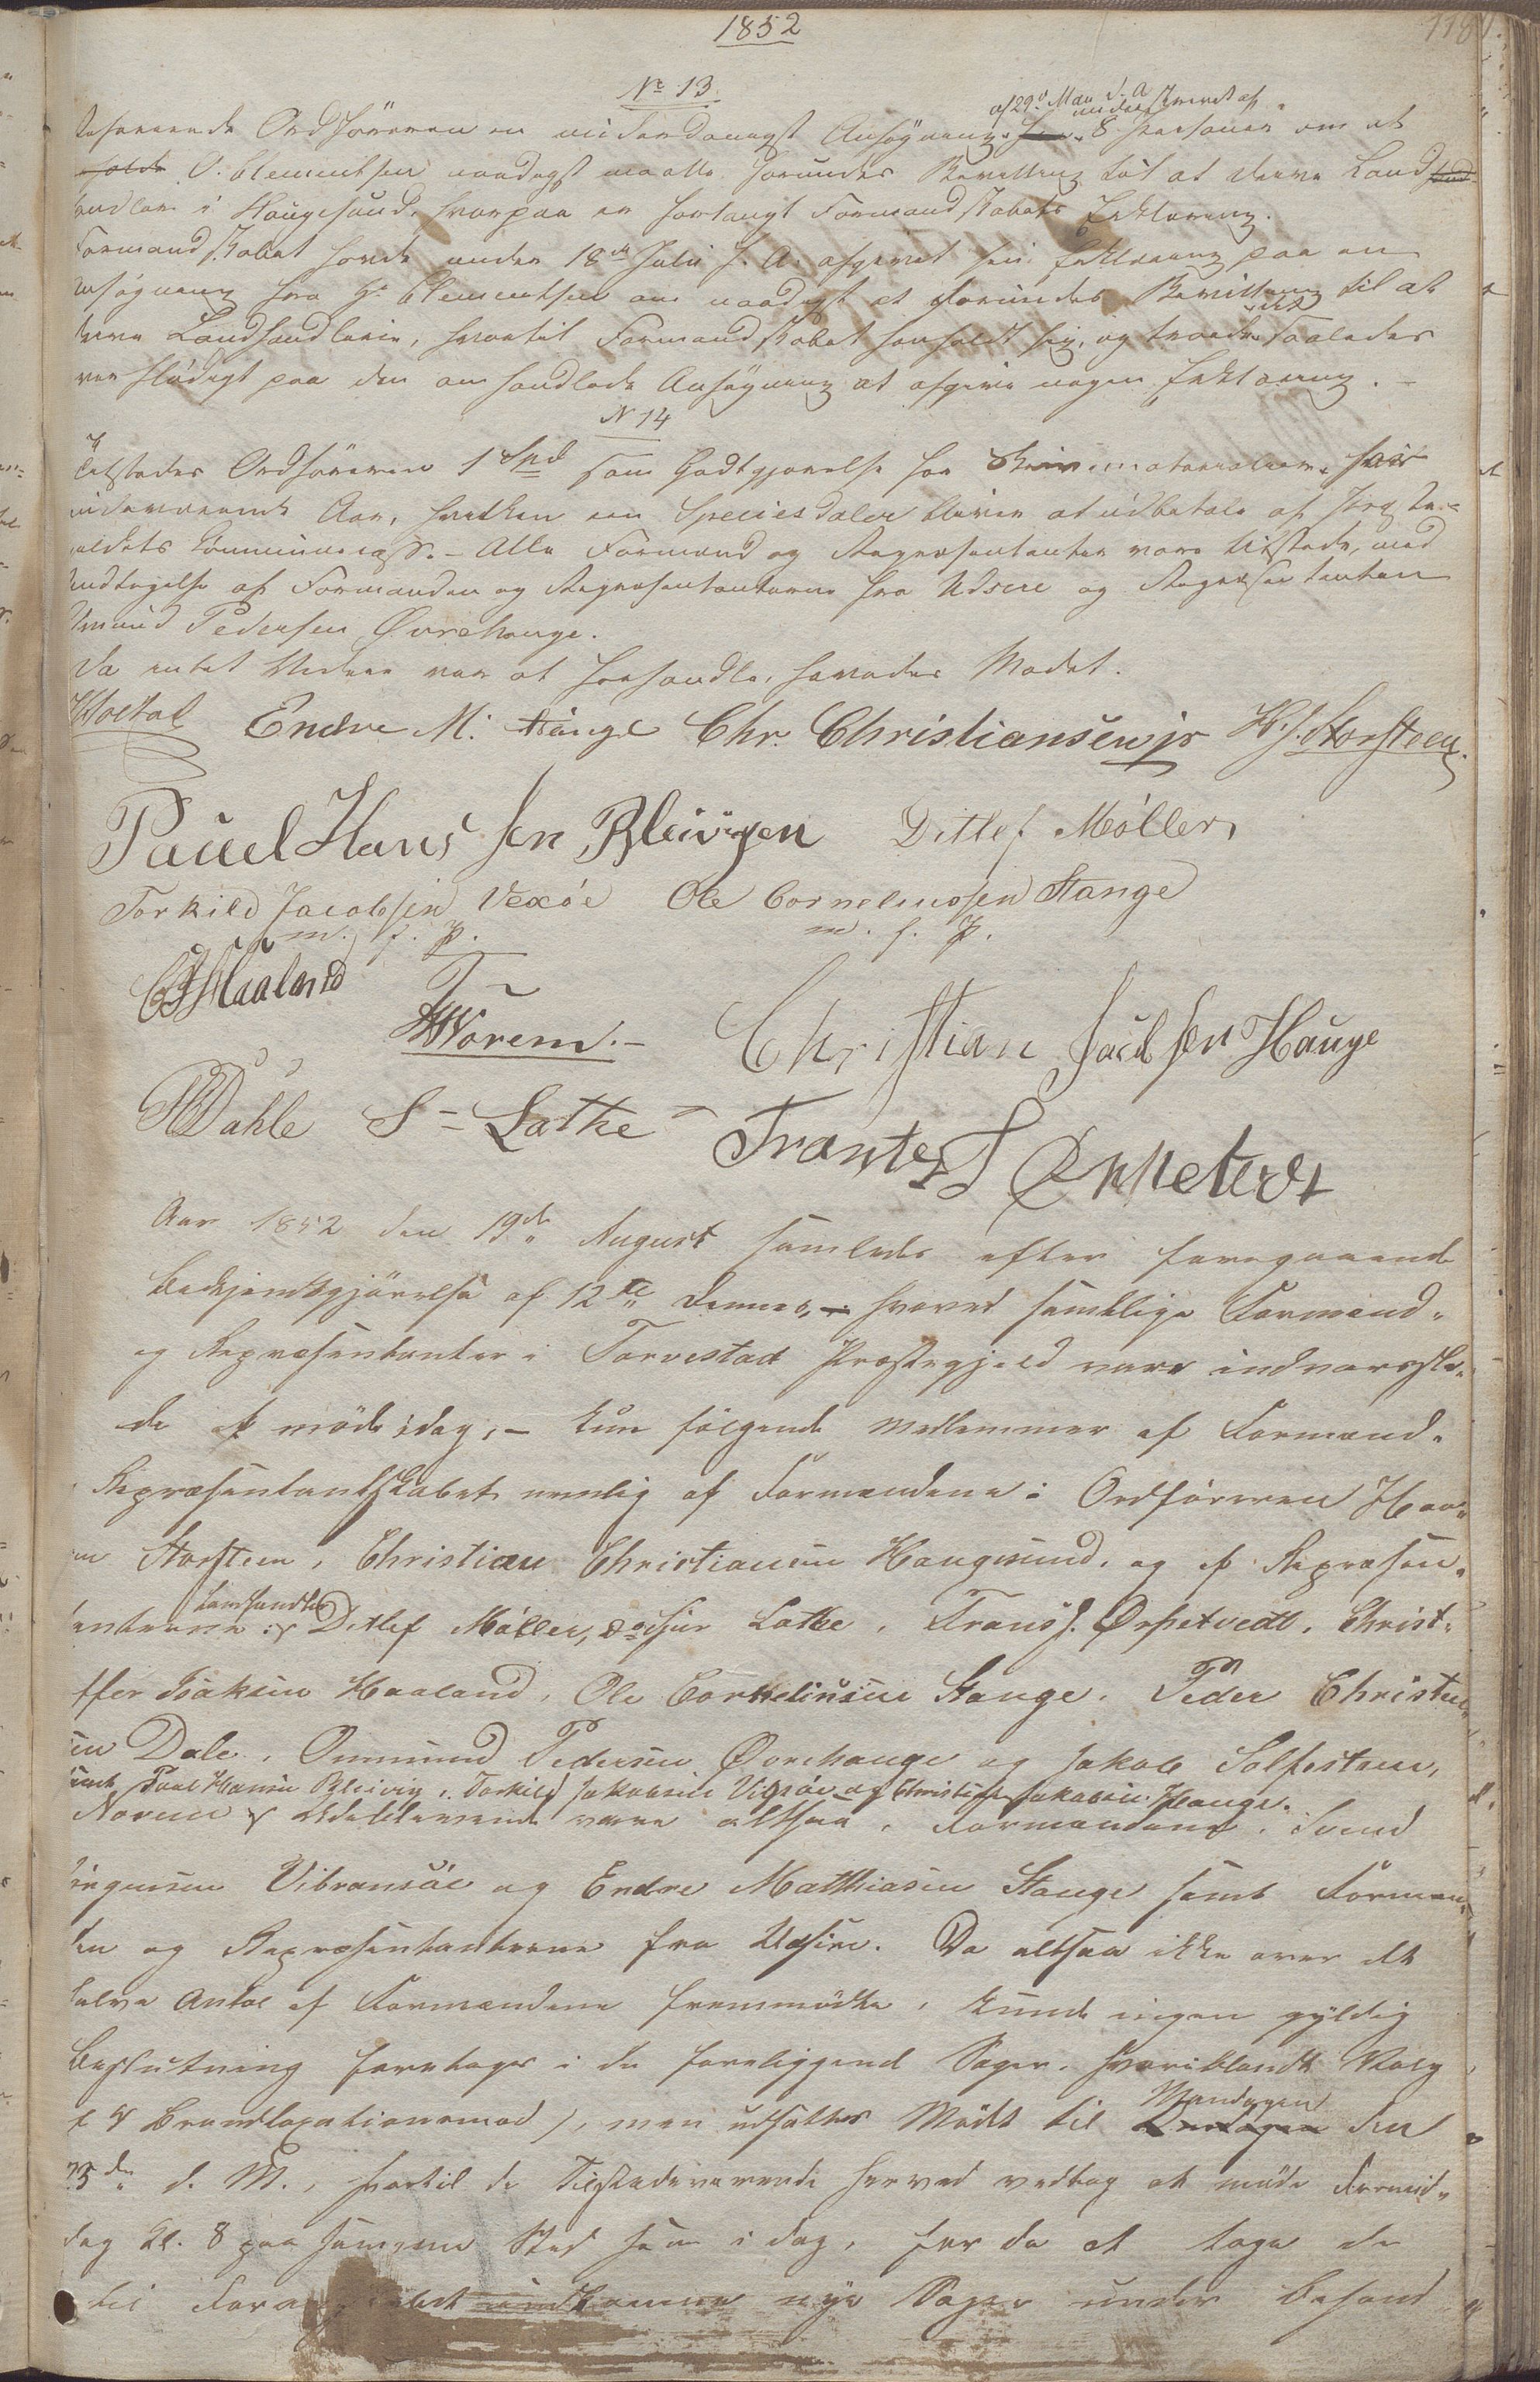 1852
118
No 13
af 29d Mai d. A. underskrevet af
Ordføreren en underdanigst Ansøgning fra 8 Personer om at
holde O. Clementsen naadigst maatte forundes Bevilling til at drive Land
handleri i Haugesund, hvorpaa er forlangt Formandskabets Erklæring.
Formandskabet havde under 18de Juli f. A. afgivet sin Erklæring paa en
Ansøgning fra Hr Clementsen om naadigst at forundes Bevilling til at
drive Landhandlerie, hvortil Formandskabet henholdt sig, og saaledes
overflødigt paa den om handlede Ansøgning at afgive nogen Erklæring.
N 14
Tilstodes Ordføreren 1 Spd som Godtgjørelse for Skrivematerialier for
indeværende Aar, hvilken een Speciesdaler bliver at udbetale af Præste-
gjeldets Communecasse. - Alle Formænd og Repræsentanter vare tilstede, med
Undtagelse af Formanden og Repræsentanterne fra Udsire og Repræsentanten
Omund Pedersen Øvrehauge.
Da intet Videre var at forhandle, hævedes Mødet.
Endre M: Stange Chr. Christiansen jr H. J. Storsteen.
Pauel Hans sen Bleivigen Ditlef Møller,
Torkild Jacobsen Vexøe Ole Corneliussen Stange
m. f. P. m. f. P.
CJ Haaland
Worem. - Christian Jacobsen Hauge
PDahle S - Lothe - Frants J Ørpetvedt
Aar 1852 den 19de August samledes efter foregaaende
Bekjendtgjørelse af 12te dennes, - hvorved samtlige Formænd-
og Repræsentanter i Torvestad Præstegjæld vare indvarsle-
de at møde idag, - kun følgende Medlemmer af Formænd-
Repræsentantskabet nemlig af Formændene: Ordføreren Haa-
Storsteen, Christian Christiansen Haugesund, og af Repræsen-
Landhandler
tanterne: Ditlef Møller, Sjur Lothe, Frans J. Ørpetvedt, Christ-
offer Isaksen Haaland, Ole Corneliusen Stange, Peder Christen-
sen Dale, Ommund Pedersen Øvrehauge og Jakob Solfestsen
samt Paul Hansen Bleivig, Torkild Jakobsen Vigsøe og Christian Jakobsen Hauge.
Norem Udeblevende vare altsaa, Formændene, Svend
Vibransøe og Endre Matthiasen Stange samt Forman-
den og Repræsentanterne fra Udsire. Da altsaa ikke over det
halve Antal af Formændene fremmødte, kunde ingen gyldig
Beslutning foretages i de foreliggende Sager, hvoriblandt Valg
Brandtaxationsmænd), men udsattes Mødet til Mandagen den
23de d. M., hvortil de Tilstedeværende herved vedtog at møde Formid-
dag Kl. 8 paa samme Sted som i dag, for da at tage de
til indkomne nye Sager under Behand